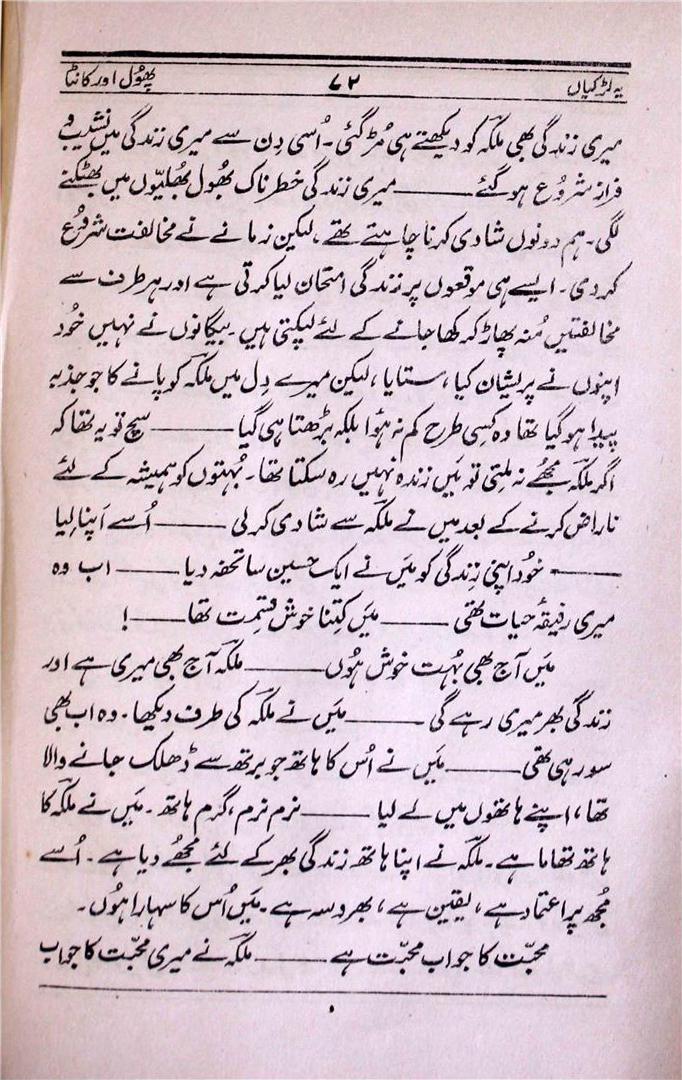 یہ لڑکیاں ۷۲ پھُول اور کانٹا
میری زندگی بھی ملکہ کو دیکھتے ہی مُڑ گئی۔ اُسی دِن سے میری زندگی میں نشیب و
فراز شروُع ہو گئے ——— میری زندگی خطرناک بھُول بھُلیّوں میں بھٹکنے
لگی۔ ہم دونوں شادی کرنا چاہتے تھے، لیکن زمانے نے مخالفت شروُع
کر دی۔ ایسے ہی موقعوں پر زندگی امتحان لیا کرتی ہے اور ہر طرف سے
مخالفتیں مُنہ پھاڑ کر کھا جانے کے لئے لپکتی ہیں۔ بیگانوں نے نہیں خوُد
اپنوں نے پریشان کیا، ستایا، لیکن میرے دِل میں ملکہ کو پانے کا جو جذبہ
پیدا ہو گیا تھا وہ کسِی طرح کم نہ ہُوا بلکہ بڑھتا ہی گیا ——— سچ تو یہ تھا کہ
اگر ملکہ مجھُے نہ ملِتی تو مَیں زندہ نہیں رہ سکتا تھا۔ بہُتوں کو ہمیشہ کے لئے
ناراض کرنے کے بعد میں نے ملکہ سے شادی کر لی ——— اُسے اَپنا لیا
——— خوُد اپنی زِندگی کو مَیں نے ایک حسین سا تحفہ دیا ——— اب وہ
میری رفیقۂ حیات تھی ——— مَیں کِتنا خوش قسِمت تھا ——— !
مَیں آج بھی بہُت خوش ہوُں ——— ملکہ آج بھی میری ہے اور
زندگی بھر میری رہے گی ——— مَیں نے ملکہ کی طرف دیکھا۔ وہ اب بھی
سو رہی تھی ——— مَیں نے اُس کا ہاتھ جو برتھ سے ڈھلک جانے والا
تھا، اپنے ہاتھوں میں لے لیا ——— نرم نرم، گرم ہاتھ۔ مَیں نے ملکہ کا
ہاتھ تھاما ہے۔ ملکہ نے اپنا ہاتھ زندگی بھر کے لئے مجھُے دیا ہے۔ اُسے
مُجھ پر اعتماد ہے، یقین ہے، بھروسہ ہے۔ مَیں اُس کا سہارا ہوُں۔
محبّت کا جواب محبّت ہے ——— ملکہ نے میری محبّت کا جواب